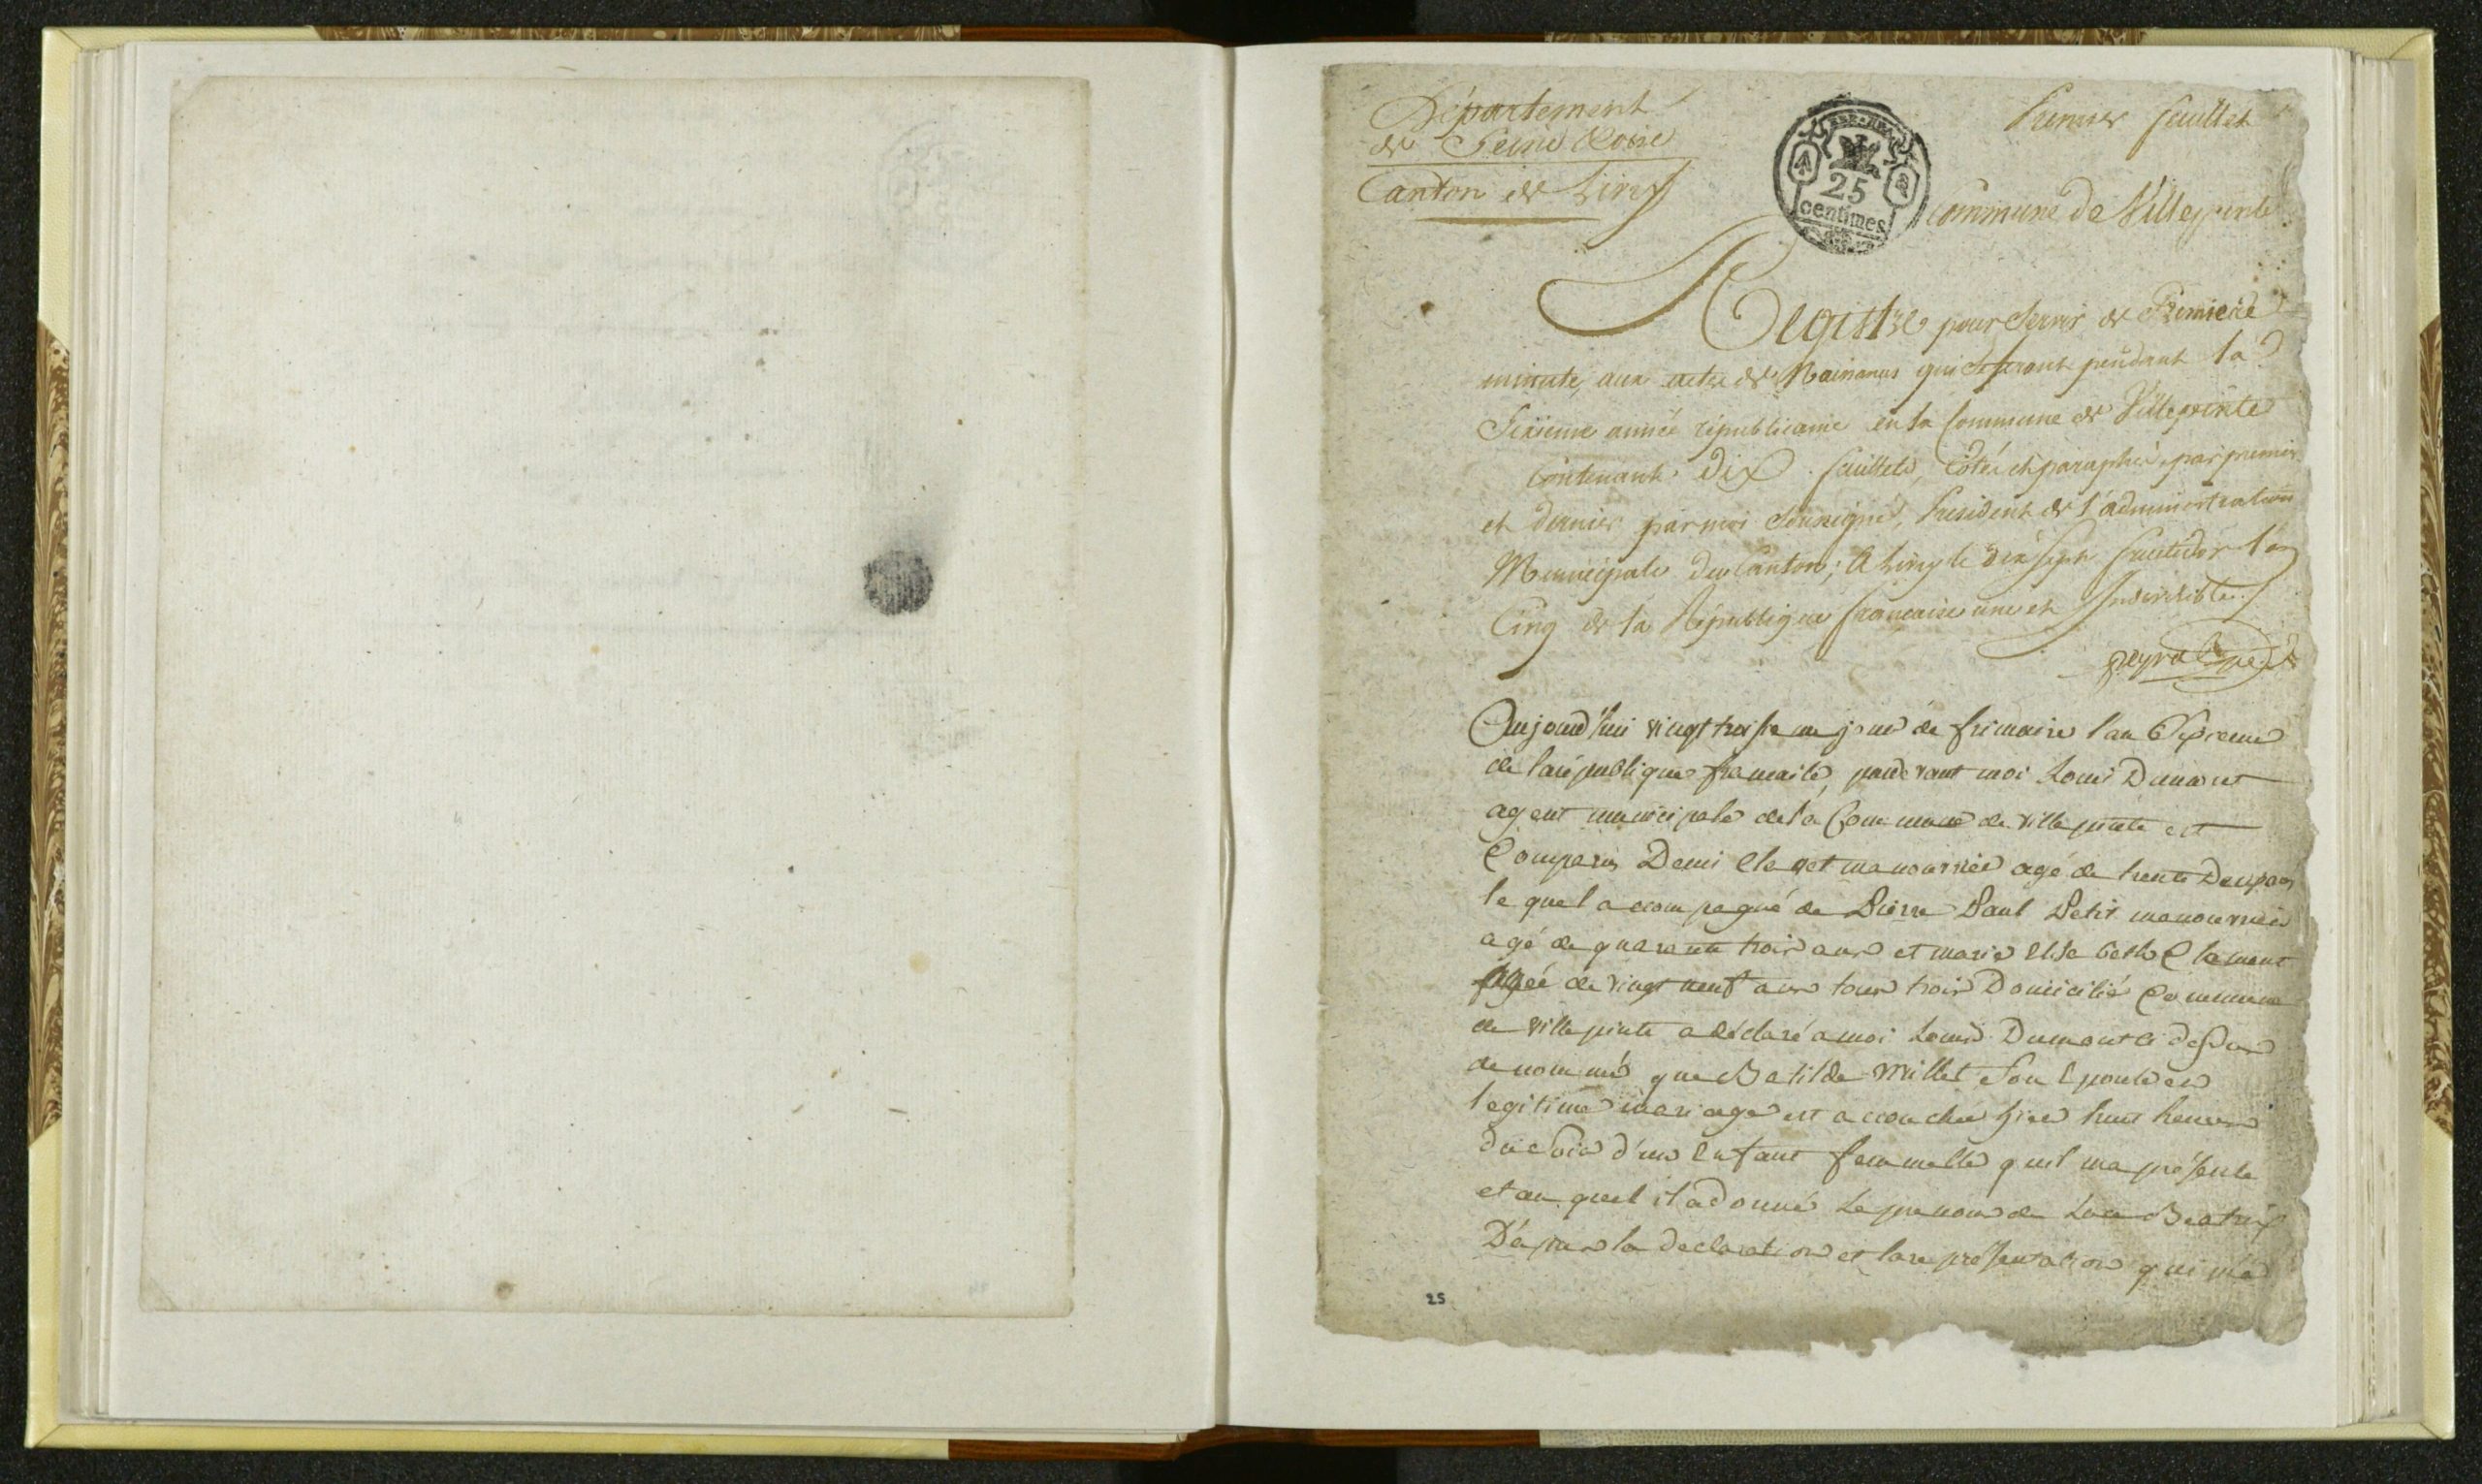 Département
de Seine & oise
Canton de Livry
Premier feuillet
REP. FRA.
25
centimes
Commune de Villepinte
Registre pour servir de Premiere
minute, aux actes de Naissances qui se feront pendant la
Sixieme année républicaine en la Commune de Villepinte
contenant dix feuillets, côtés et paraphés, par premier
et dernier par moi soussigné, Président de l'administration
Municipale du Canton; A Livry le dix sept fructidor l'an
Cinq de la République française une et Indivisible.
Aujourd'hui vingt troisieme jour de frimaire l'an 6 sixieme
de la république francaise, pardevant moi Louis Dumont
agent municipale de la Commune de villepinte est
Comparu Denis manouvrier agé de trente Deux ans
le quel accompagné de Pierre Paul Petit manouvrier
agé de quarante trois ans et marie Elisabeth Clement
Agée de vingt neuf ans tous trois Domicilié Commune
de villepinte a déclaré a moi Louis Dumont ci dessus
denommé que Batilde Millet son Epouse en
legitime mariage est accouchée hier huit heures
du soir d'un Enfant femmelle quil ma présenté
et au quel il a donné le prenom de Beatrix
D'apres la declaration et la représentation qui m'a
25